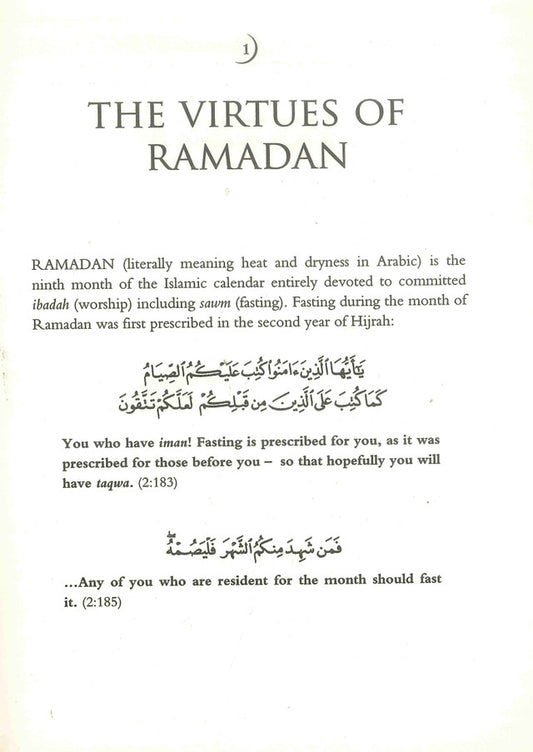 1
THE VIRTUES OF
RAMADAN
RAMADAN (literally meaning heat and dryness in Arabic) is the
ninth month of the Islamic calendar entirely devoted to committed
ibadah (worship) including sawm (fasting). Fasting during the month of
Ramadan was first prescribed in the second year of Hijrah:
يَـٰٓأَيُّهَا ٱلَّذِينَ ءَامَنُوا۟ كُتِبَ عَلَيْكُمُ ٱلصِّيَامُ
كَمَا كُتِبَ عَلَى ٱلَّذِينَ مِن قَبْلِكُمْ لَعَلَّكُمْ تَتَّقُونَ
You who have iman! Fasting is prescribed for you, as it was
prescribed for those before you – so that hopefully you will
have taqwa. (2:183)
فَمَن شَهِدَ مِنكُمُ ٱلشَّهْرَ فَلْيَصُمْهُ ۖ
...Any of you who are resident for the month should fast
it. (2:185)